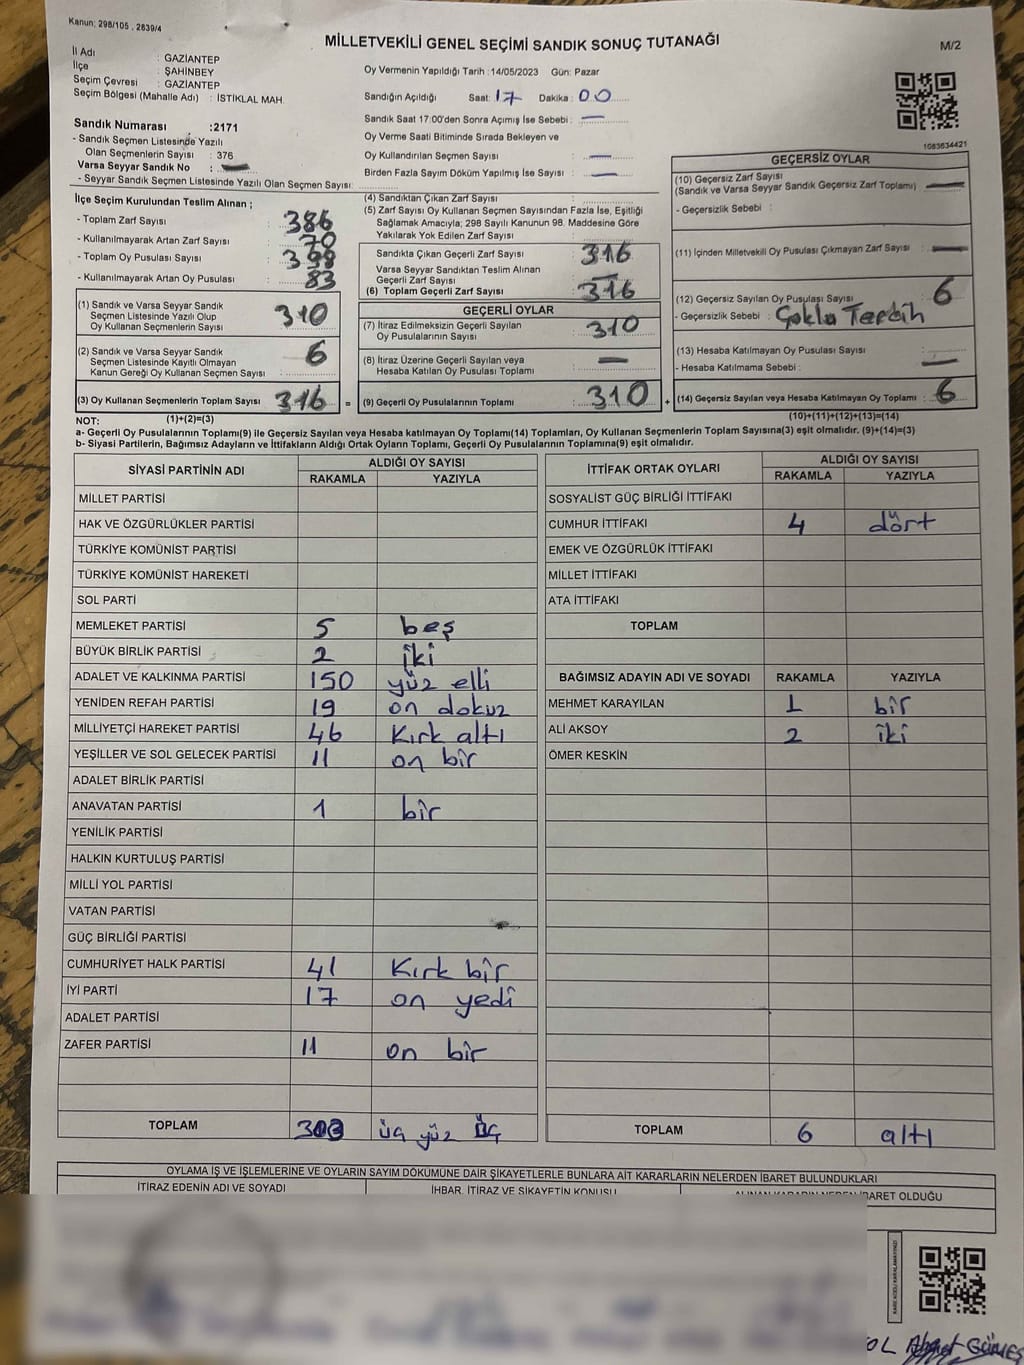 Kanun: 298/105 , 2839/4
MİLLETVEKİLİ GENEL SEÇİMİ SANDIK SONUÇ TUTANAĞI
M/2
İl Adı : GAZİANTEP
İlçe : ŞAHİNBEY
Seçim Çevresi : GAZİANTEP
Seçim Bölgesi (Mahalle Adı) : İSTİKLAL MAH.
Sandık Numarası :2171
- Sandık Seçmen Listesinde Yazılı
Olan Seçmenlerin Sayısı : 376
Varsa Seyyar Sandık No : —
- Seyyar Sandık Seçmen Listesinde Yazılı Olan Seçmen Sayısı
Oy Vermenin Yapıldığı Tarih :14/05/2023 Gün: Pazar
Sandığın Açıldığı Saat: 17 Dakika : 00
Sandık Saat 17:00'den Sonra Açımış İse Sebebi : —
Oy Verme Saati Bitiminde Sırada Bekleyen ve
Oy Kullandırılan Seçmen Sayısı : —
Birden Fazla Sayım Döküm Yapılmış İse Sayısı : —
1083634421
İlçe Seçim Kurulundan Teslim Alınan ;
- Toplam Zarf Sayısı : 386
- Kullanılmayarak Artan Zarf Sayısı : 70
- Toplam Oy Pusulası Sayısı : 398
- Kullanılmayarak Artan Oy Pusulası : 83
(1) Sandık ve Varsa Seyyar Sandık
Seçmen Listesinde Yazılı Olup
Oy Kullanan Seçmenlerin Sayısı 310
(2) Sandık ve Varsa Seyyar Sandık
Seçmen Listesinde Kayıtlı Olmayan
Kanun Gereği Oy Kullanan Seçmen Sayısı : 6
(3) Oy Kullanan Seçmenlerin Toplam Sayısı 316 =
(1)+(2)=(3)
(4) Sandıktan Çıkan Zarf Sayısı :
(5) Zarf Sayısı Oy Kullanan Seçmen Sayısından Fazla İse, Eşitliği
Sağlamak Amacıyla; 298 Sayılı Kanunun 98. Maddesine Göre
Yakılarak Yok Edilen Zarf Sayısı :
Sandıkta Çıkan Geçerli Zarf Sayısı : 316
Varsa Seyyar Sandıktan Teslim Alınan
Geçerli Zarf Sayısı : —
(6) Toplam Geçerli Zarf Sayısı : 316
GEÇERLİ OYLAR
(7) İtiraz Edilmeksizin Geçerli Sayılan
Oy Pusulalarının Sayısı : 310
(8) İtiraz Üzerine Geçerli Sayılan veya
Hesaba Katılan Oy Pusulası Toplamı : —
(9) Geçerli Oy Pusulalarının Toplamı : 310 +
GEÇERSİZ OYLAR
(10) Geçersiz Zarf Sayısı
(Sandık ve Varsa Seyyar Sandık Geçersiz Zarf Toplamı) : —
- Geçersizlik Sebebi :
(11) İçinden Milletvekili Oy Pusulası Çıkmayan Zarf Sayısı : —
(12) Geçersiz Sayılan Oy Pusulası Sayısı : 6
- Geçersizlik Sebebi : Çoklu Tercih
(13) Hesaba Katılmayan Oy Pusulası Sayısı :
- Hesaba Katılmama Sebebi : —
(14) Geçersiz Sayılan veya Hesaba Katılmayan Oy Toplamı : 6
(10)+(11)+(12)+(13)=(14)
NOT:
a- Geçerli Oy Pusulalarının Toplamı(9) ile Geçersiz Sayılan veya Hesaba katılmayan Oy Toplamı(14) Toplamları, Oy Kullanan Seçmenlerin Toplam Sayısına(3) eşit olmalıdır. (9)+(14)=(3)
b- Siyasi Partilerin, Bağımsız Adayların ve İttifakların Aldığı Ortak Oyların Toplamı, Geçerli Oy Pusulalarının Toplamına(9) eşit olmalıdır.
SİYASİ PARTİNİN ADI ALDIĞI OY SAYISI
RAKAMLA YAZIYLA
MİLLET PARTİSİ
HAK VE ÖZGÜRLÜKLER PARTİSİ
TÜRKİYE KOMÜNİST PARTİSİ
TÜRKİYE KOMÜNİST HAREKETİ
SOL PARTİ
MEMLEKET PARTİSİ 5 beş
BÜYÜK BİRLİK PARTİSİ 2 iki
ADALET VE KALKINMA PARTİSİ 150 yüz elli
YENİDEN REFAH PARTİSİ 19 on dokuz
MİLLİYETÇİ HAREKET PARTİSİ 46 Kırk altı
YEŞİLLER VE SOL GELECEK PARTİSİ 11 on bir
ADALET BİRLİK PARTİSİ
ANAVATAN PARTİSİ 1 bir
YENİLİK PARTİSİ
HALKIN KURTULUŞ PARTİSİ
MİLLİ YOL PARTİSİ
VATAN PARTİSİ
GÜÇ BİRLİĞİ PARTİSİ
CUMHURİYET HALK PARTİSİ 41 Kırk bir
İYİ PARTİ 17 on yedi
ADALET PARTİSİ
ZAFER PARTİSİ 11 on bir
TOPLAM 303 üç yüz üç
İTTİFAK ORTAK OYLARI ALDIĞI OY SAYISI
RAKAMLA YAZIYLA
SOSYALİST GÜÇ BİRLİĞİ İTTİFAKI
CUMHUR İTTİFAKI 4 dört
EMEK VE ÖZGÜRLÜK İTTİFAKI
MİLLET İTTİFAKI
ATA İTTİFAKI
TOPLAM
BAĞIMSIZ ADAYIN ADI VE SOYADI RAKAMLA YAZIYLA
MEHMET KARAYILAN 1 bir
ALİ AKSOY 2 iki
ÖMER KESKİN
TOPLAM 6 altı
OYLAMA İŞ VE İŞLEMLERİNE VE OYLARIN SAYIM DÖKÜMÜNE DAİR ŞİKAYETLERLE BUNLARA AİT KARARLARIN NELERDEN İBARET BULUNDUKLARI
İTİRAZ EDENİN ADI VE SOYADI İHBAR, İTİRAZ VE ŞİKAYETİN KONUSU ALINAN KARARIN NEDEN İBARET OLDUĞU
KARE KODU KARALAMAYINIZ!
OL Ahmet GÜNEŞ